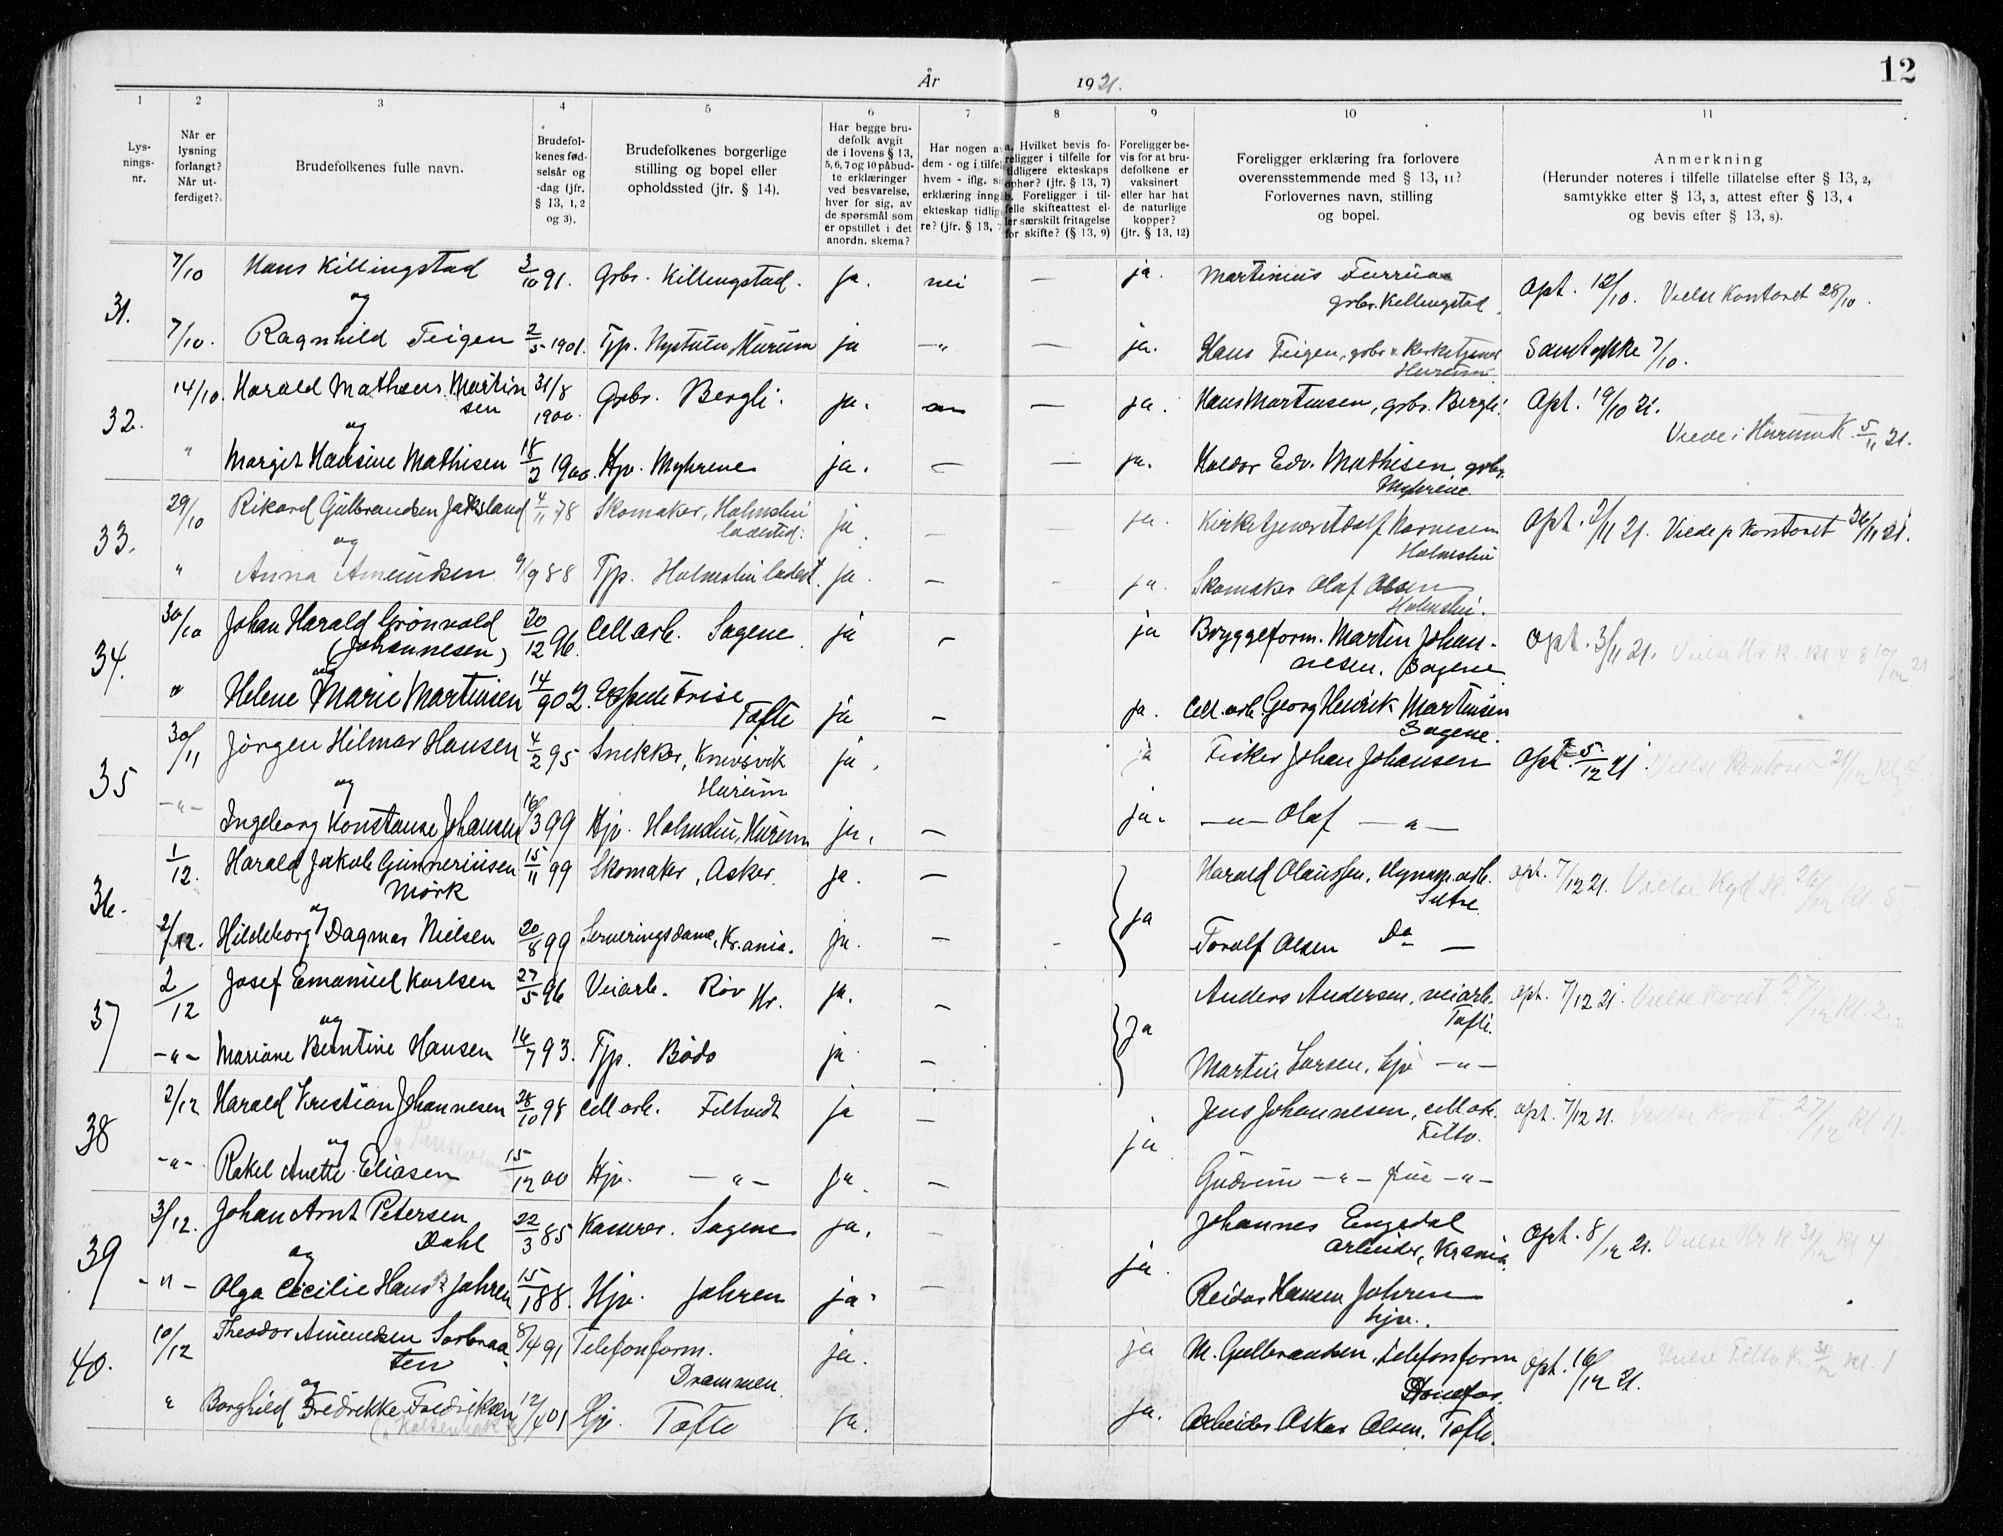 12
År 1921.
1 2 3 4 5 6 7 8 9 10 11
Lys-
nings-
nr.
Når er
lysning
forlangt?
Når ut-
ferdiget?
Brudefolkenes fulle navn.
Brudefol-
kenes fød-
selsår og
-dag (jfr.
§ 13, 1, 2
og 3).
Brudefolkenes borgerlige
stilling og bopel eller
opholdssted (jfr. § 14).
Har begge bru-
defolk avgit
de i lovens § 13,
5, 6, 7 og 10 påbud-
te erklæringer
ved besvarelse,
hver for sig, av
de spørsmål som
er opstillet i det
anordn. skema?
Har nogen a
dem - og i tilfel
hvem - iflg. s
erklæring inng
ekteskap tidlig
re? (jfr. § 13,
a. Hvilket bevis fo-
religger i tilfelle for
tidligere ekteskaps
ophør? (jfr. § 13, 7)
b. Foreligger i til-
felle skifteattest el-
ler særskilt fritagelse
for skifte? (§ 13, 9)
Foreligger be-
vis for at bru-
defolkene er
vaksinert
eller har hat
de naturlige
kopper?
(jfr. § 13, 12)
Foreligger erklæring fra forlovere
overensstemmende med § 13, 11?
Forlovernes navn, stilling
og bopel.
Anmerkning
(Herunder noteres i tilfelle tillatelse efter § 13, 2,
samtykke efter § 13, 3, attest efter § 13, 4
og bevis efter § 13, 8).
31. 7/10 Hans Killingstad 3/10 91. Gsbr. Killingstad. ja. nei — ja. Martinius
gsbr. Killingstad Opt. 12/10. Vielse Kontoret 28/10.
og
7/10. Ragnhild Teigen 2/5 1901. Tjp. Nystuen Hurum ja —"— — ja. Hans Teigen, gsbr. & Kirketjener
Hurum. Samtykke 7/10.
32. 14/10. Harald Mathæus Martin
sen 31/8
1900. Gsbr. Bergli. ja. — ja. Hans Martinsen, gsbr. Bergli. Opt. 19/10 21.
og
Viede i Hurum K. 5/11 21.
" Margit Hansine Mathisen 18/2 1900. Hjv. Myhrene ja. — — ja. Haldor Edv. Mathisen gsbr.
Myhrene.
33. 29/10 Rikard Gulbrandsen Jaksland 4/11 78 Skomaker, Holmsbu
ladested. ja — — ja. Kirketjener Adolf
Holmsbu Opt. 2/11 21. Viede p Kontoret 26/11 21.
og
" Anna Amundsen 9/9 88 Tjp. Holmsbu ladest. ja. — — ja. Skomaker Olaf Olsen
Holmsbu.
34. 30/10 Johan Harald Grönvold
(Johannesen) 20/12 96. Cell arb. Sagene ja — ja Bryggeform. Martin Johan-
nesen. Sagene Opt. 3/11 21. Vielse Hr. K. 10/12 21
og
" Helene Marie Martinsen 14/ 902. Expeditrise
Tofte ja — ja. Cell. arb. Georg Henrik Martinsen
Sagene.
35 30/11 Jörgen Hilmar Hansen 4/2 95 Snekker, Knivsvik
Hurum ja. ja Fisker Johan Johansen Opt. 5/12 21. Vielse Kontoret 21/12
og
—"— Ingeborg Konstanse Johansen 16/3 99 Hjv. Holmsbu, Hurum ja. — ja. —"— Olaf —"—
36. 1/12. Harald Jakob Gunneriusen
Mörk 15/11 99 Skomaker, Asker. ja. — ja Harald Olaussen, arb.
Sætre Opt. 7/12 21. Vielse K. 26/12 kl. 5
og
2/12. Hildeborg Dagmar Nielsen 20/8 99 Serveringsdame, Kr.ania. ja. — - Toralf Olsen Do —
37 2/12 Josef Emanuel Karlsen 27/5 96 Veiarb. Röv
Hr. ja. — ja Anders Andersen, veiarb.
Tofte. Opt. 7/12 21. Vielse Kont 27/12 kl. 2.
og
—"— Mariane Berntine Hansen 16/7 93. Tjp. Bödo ja — Martin Larsen, hjv —"—
38 2/12 Harald Kristian Johannesen 28/10 98 Cell arb. Filtvedt ja — ja Jens Johannesen, cell arb.
Filtv. Opt. 7/12 21. Vielse Kont 27/12 kl. 11
og
—"— Rakel Anette Eliasen 15/12 00 Hjv. —"— ja. — Gudrun —"— frue —"—
39 3/12. Johan Arnt Petersen
Dahl 22/3 85 Kasserer. Sagene ja. — ja. Johannes Engedal
arbeider, Kr.ania. Opt. 8/12 21. Vielse Hr. K. 31/12 kl. 4
og
—"— Olga Cecilie Hansdr Jahren 15/1 88. Hjv. Jahren ja. — Reidar Hansen Jahren
hjv.
40. 10/12 Theodor Amundsen Sorbraa-
ten 8/4 91 Telefonform.
Drammen. ja. ja M. Gulbrandsen, Telefonform
Hönefos. Opt. 16/12 21. Vielse Filtv. K. 31/12 kl. 1
og
" Borghild Fredrikke Fredriksen 12/4 01 Hjv. Tofte ja. ja. Arbeider Oskar Olsen. Tofte.